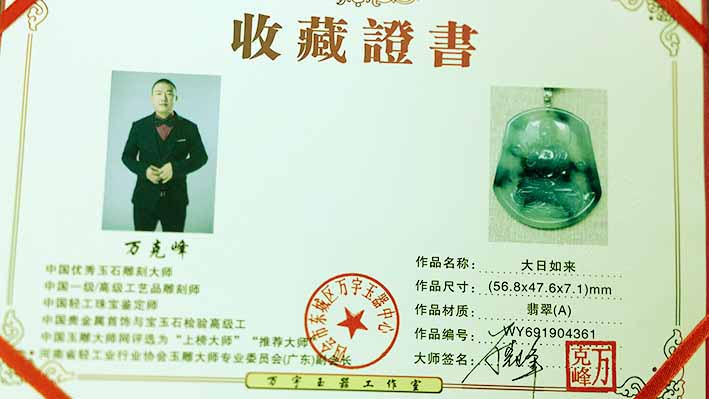 收藏證書
万克峰
中国优秀玉石雕刻大师
中国一级/高级工艺品雕刻师
中国轻工珠宝鉴定师
中国贵金属首饰与宝玉石检验高级工
中国玉雕大师网评选为“上榜大师” “推荐大师”
河南省轻工业行业协会玉雕大师专业委员会(广东)副会长
市东城区万宇玉器中心
作品名称: 大日如来
作品尺寸: (56.8x47.6x7.1)mm
作品材质: 翡翠(A)
作品编号: WY691904361
大师签名:
万克峰
万宇玉器工作室